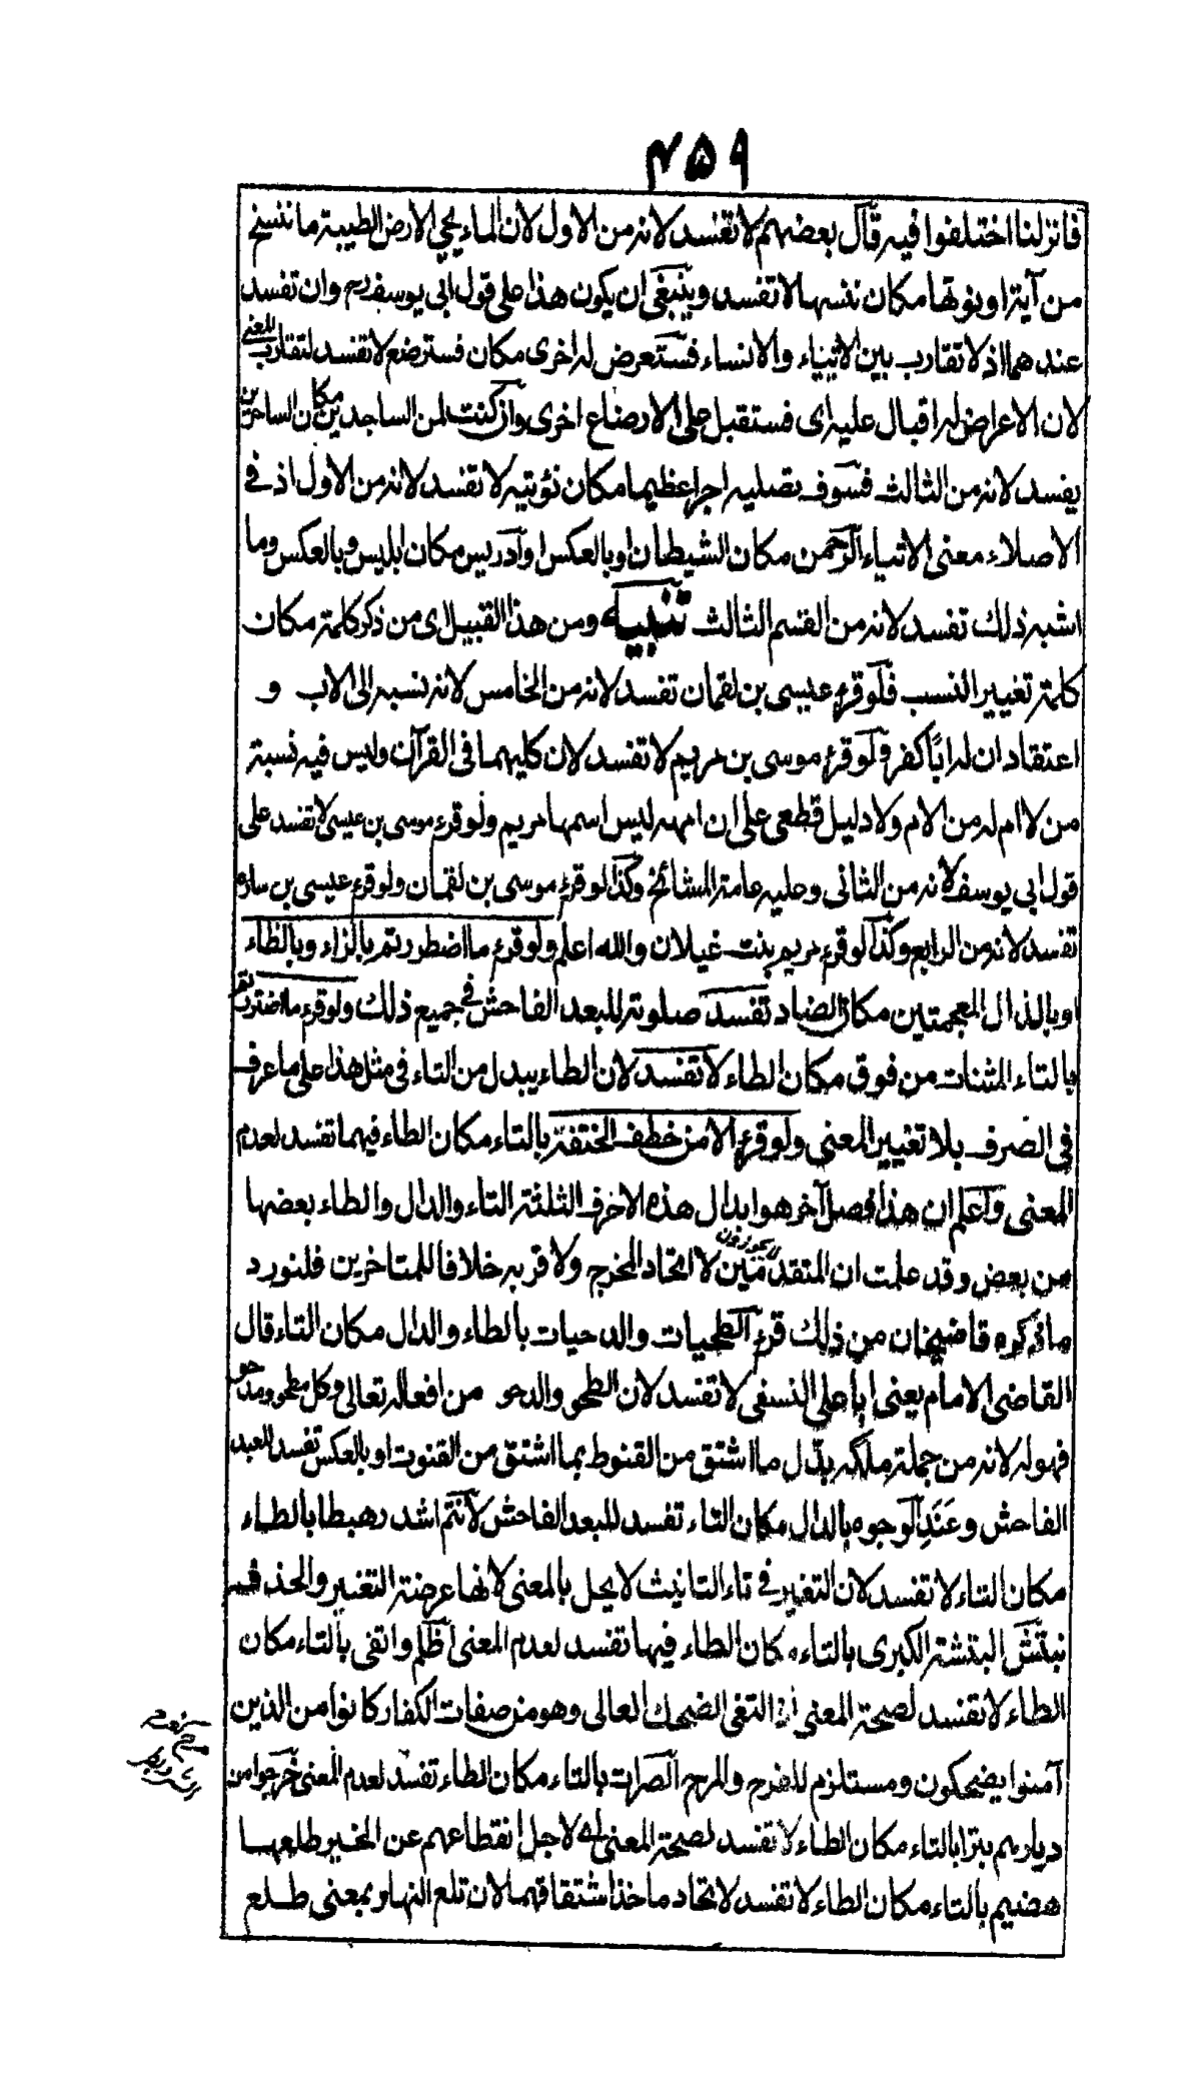 ٤٥٩
فانزلنا اختلفوا فيه قال بعضهم لا تفسد لانه من الاول لان الماء يحيي الارض الطيبة ما ننسخ
من آية او نوتها مكان ننسها لا تفسد وينبغى ان يكون هذا على قول ابي يوسف رح وان تفسد
عندهما اذ لا تقارب بين الاتياء والانساء فستعرض له اخرى مكان فسترضع لا تفسد لتقارب المعنى
لان الاعراض له اقبال عليه اى فستقبل على الارضاع اخرى وان كنت لمن الساجدين مكان الساخرين
يفسد لانه من الثالث فسوف نصليه اجرا عظيما مكان نؤتيه لا تفسد لانه من الاول اذ فى
الاصلاء معنى الاتياء الرحمن مكان الشيطان او بالعكس او ادريس مكان ابليس وبالعكس وما
اشبه ذلك تفسد لانه من القسم الثالث تنبيه ومن هذا القبيل اى من ذكر كلمة مكان
كلمة تغيير النسب فلو قرء عيسى بن لقمان تفسد لانه من الخامس لانه نسبه الى الاب و
اعتقاد ان له ابًا كفر ولو قرء موسى بن مريم لا تفسد لان كليهما فى القرآن وليس فيه نسبة
من لا ام له من الام ولا دليل قطعى على ان امه ليس اسمها مريم ولو قرء موسى بن عيسى لا تفسد على
قول ابي يوسف لانه من الثانى وعليه عامة المشائخ وكذا لو قرء موسى بن لقمان ولو قرء عيسى بن ساره
تفسد لانه من الرابع وكذا لو قرء مريم بنت غيلان والله اعلم ولو قرء ما اضطررتم بالزاء وبالظاء
او بالذال المعجمتين مكان الضاد تفسد صلوته للبعد الفاحش فى جميع ذلك ولو قرء ما اضتررتم
بالتاء المثنات من فوق مكان الطاء لا تفسد لان الطاء يبدل من التاء فى مثل هذا على ما عرف
فى الصرف بلا تغيير المعنى ولو قرء الا من خطف الختفة بالتاء مكان الطاء فيهما تفسد لعدم
المعنى واعلم ان هذا فصل آخر هو ابدال هذه الاحرف الثلثة التاء والدال والطاء بعضها
من بعض وقد علمت ان المتقدمين لا يجوزون لا اتحاد المخرج ولا قربه خلافا للمتاخرين فلنورد
ما ذكره قاضيخان من ذلك قرء الطحيات والدحيات بالطاء والدال مكان التاء قال
القاضى الامام يعنى ابا على النسفى لا تفسد لان الطحو والدحو من افعاله تعالى وكل مطحو ومدحو
فهو له لانه من جملة ملكه بدل ما اشتق من القنوط بما اشتق من القنوت او بالعكس تفسد للبعد
الفاحش وعَنَدِ الوجوه بالدال مكان التاء تفسد للبعد الفاحش لانتم اشد رهبطا بالطاء
مكان التاء لا تفسد لان التغير فى تاء التانيث لا يخل بالمعنى لانها عرضة التغير والحذف
نبتش البتشة الكبرى بالتاء مكان الطاء فيها تفسد لعدم المعنى اظلم واتغى بالتاء مكان
الطاء لا تفسد لصحة المعنى اذ التغى الضحك العالى وهو من صفات الكفار كانوا من الذين
آمنوا يضحكون ومستلزم للفرح والمرح الصرات بالتاء مكان الطاء تفسد لعدم المعنى خرجوا من
ديارهم بترا بالتاء مكان الطاء لا تفسد لصحة المعنى اى لاجل انقطاعهم عن الخير طلعها
هضيم بالتاء مكان الطاء لا تفسد لاتحاد ماخذ اشتقاقهما لان تلع النهار بمعنى طلع